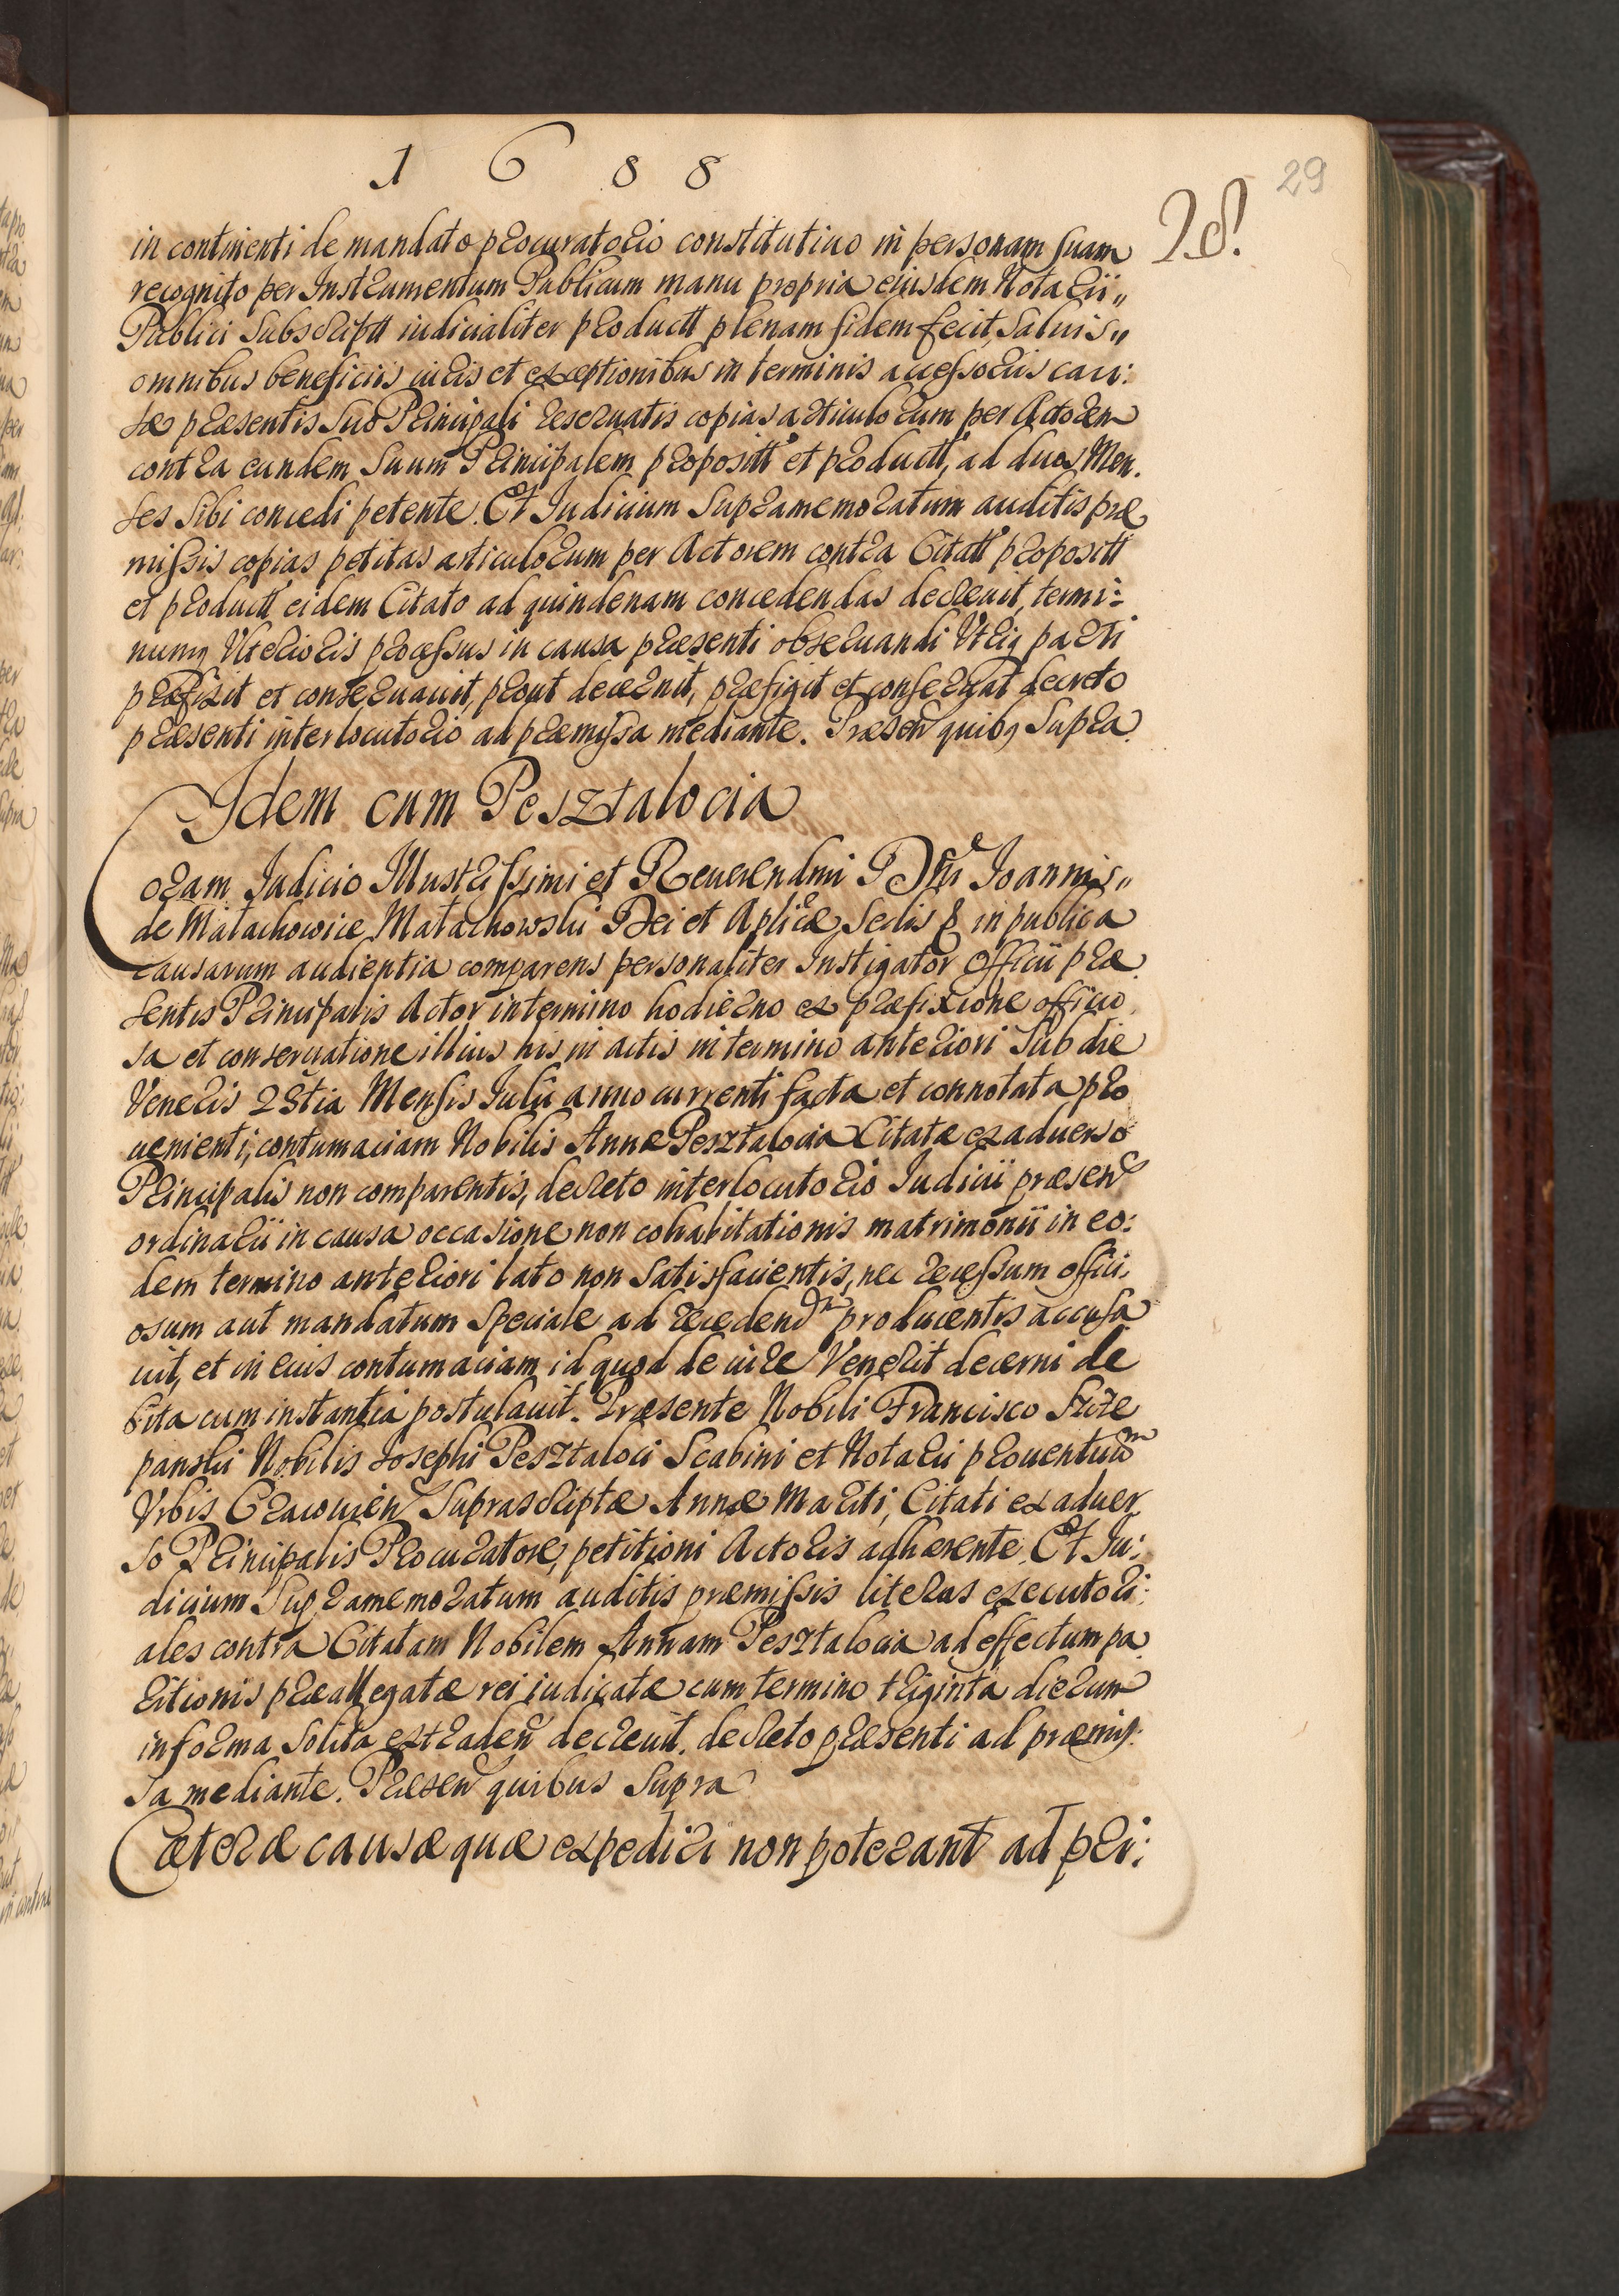 1 6 8 8
29
28.
in continenti de mandato procuratorio constitutiuo in personam suam
recognito per Instrumentum Publicum manu propria eiusdem Notarii,,
Publici Subscriptt iudicialiter productt plenam fidem fecit, Saluis,,
omnibus beneficiis iuris et exceptionibus in terminis accessoriis cau:
sæ præsentis Suo Principali reseruatis copias articulorum per Actorem
contra eundem Suum Principalem propositt et productt, ad duos Men.
ses Sibi concedi petente. Et Iudicium Supramemoratum auditis præ
missis copias petitas articulorum per Actorem contra Citatt propositt
et productt eidem Citato ad quindenam concedendas decreuit, termi:
numq Vlterioris processus in causa præsenti obseruandi Vtriq parti
præfixit et conseruauit, prout decernit, præfigit et conseruat decreto
præsenti interlocutorio ad præmissa mediante. Præsen quibq Supra.
Idem cum Pesztalocia
Coram Iudicio Illustrissimi et Reuerendmi D Dni Ioannis,,
de Małachowice Małachowski Dei et Aplicæ Sedis & in publica
causarum audientia comparens personaliter Instigator Officii præ
sentis Principalis Actor in termino hodierno ex præfixione officio
sa et conseruatione illius his in actis in termino anteriori Sub die
Veneris 23tia Mensis Iulii anno currenti facta et connotata pro
uenienti, contumaciam Nobilis Annæ Pesztalocia Citatæ ex aduerso
Principalis non comparentis, decreto interlocutorio Iudicii præsen
ordinarii in causa occasione non cohabitationis matrimonii in eo:
dem termino anteriori lato non Satisfacientis, nec recessum offici,
osum aut mandatum Speciale ad recedendm producentis accusa
uit, et in eius contumaciam id quod de iure Venerit decerni de
bita cum instantia postulauit. Præsente Nobili Francisco Szcze
panski Nobilis Iosephi Pesztaloci Scabini et Notarii prouentuum
Vrbis Cracouien Suprascriptæ Annæ Mariti, Citati ex aduer
so Principalis Procuratore, petitioni Actoris adhærente. Et Iu:
dicium Supramemoratum auditis præmissis literas executori:
ales contra Citatam Nobilem Annam Pesztalocia ad effectum pa
ritionis præallegatæ rei iudicatæ cum termino triginta dierum
in forma Solita extraden decreuit. decreto præsenti ad præmis:
sa mediante. Præsen quibus Supra
Cæteræ causæ quæ expediri non poterant ad pri: